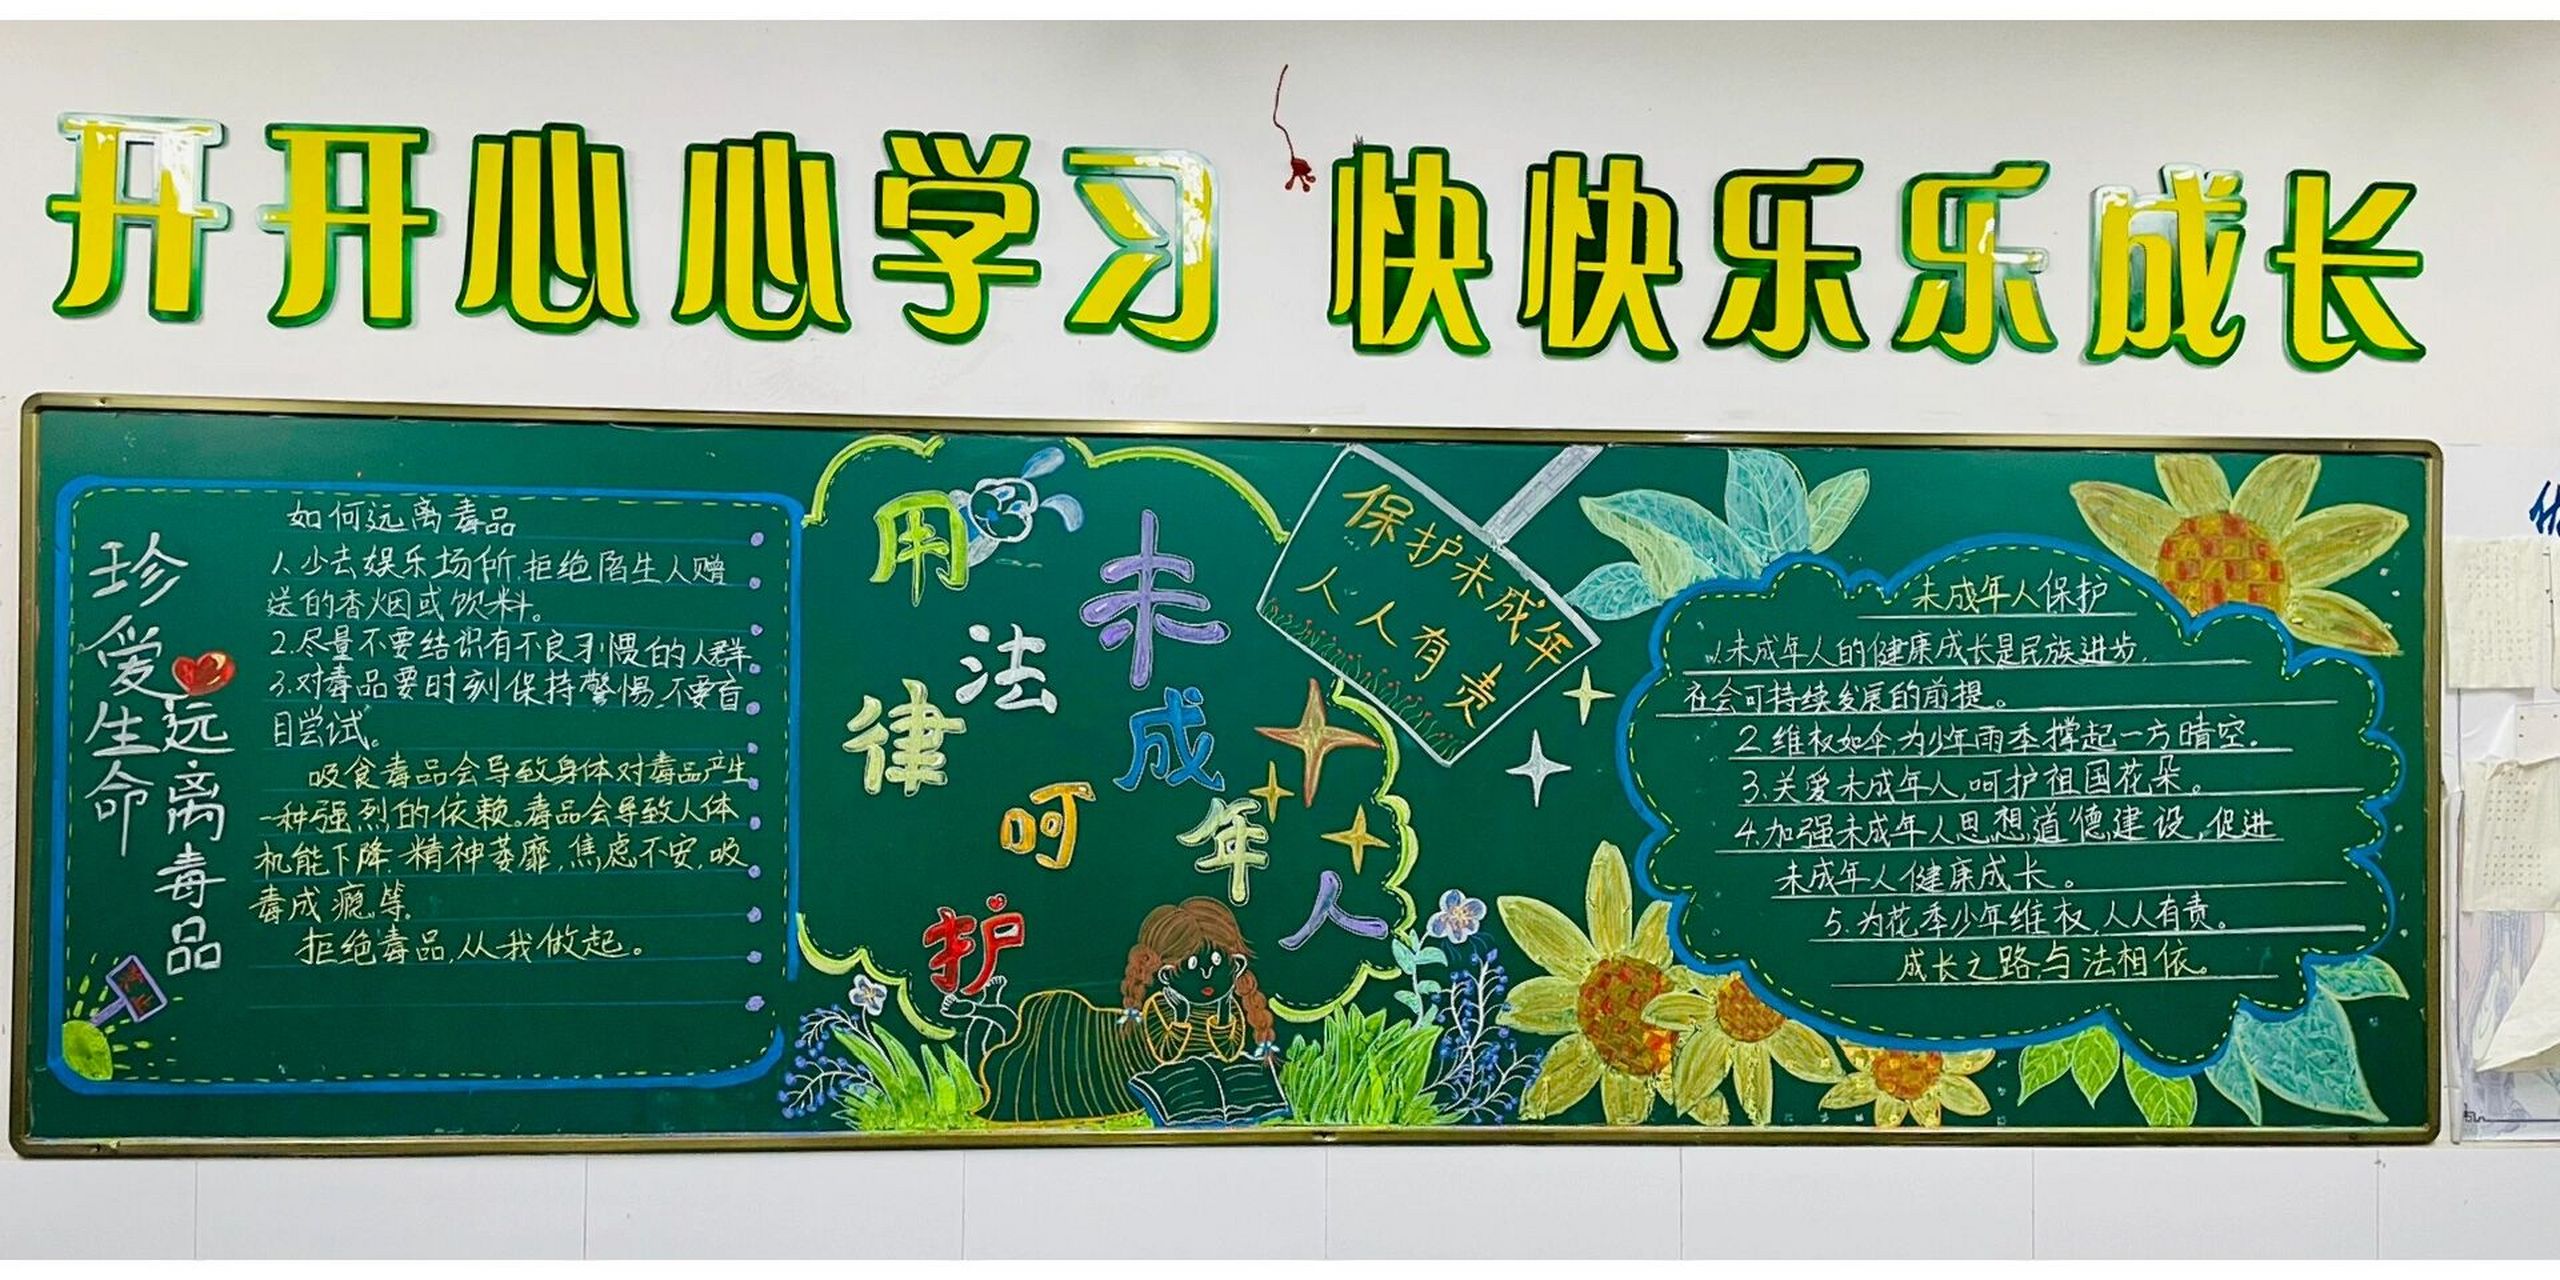 开开心心学习 快快乐乐成长
珍爱生命
远离毒品
如何远离毒品
1.少去娱乐场所,拒绝陌生人赠
送的香烟或饮料。
2.尽量不要结识有不良习惯的人群
3.对毒品要时刻保持警惕,不要盲
目尝试。
吸食毒品会导致身体对毒品产生
一种强烈的依赖。毒品会导致人体
机能下降.精神萎靡,焦虑不安,吸
毒成瘾,等.
拒绝毒品,从我做起。
用法律呵护
未成年人
保护未成年
人人有责
未成年人保护
1.未成年人的健康成长是民族进步,
社会可持续发展的前提。
2.维权如伞,为少年雨季撑起一方晴空.
3.关爱未成年人,呵护祖国花朵。
4.加强未成年人思想道德建设,促进
未成年人健康成长。
5.为花季少年维权,人人有责。
成长之路,与法相依。